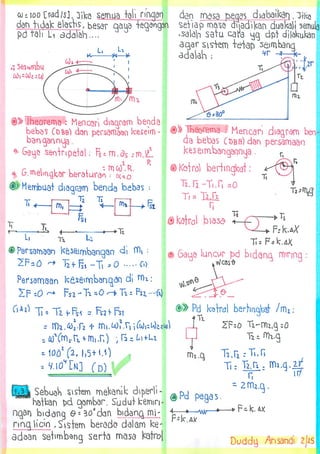 ω = 100 [rad/s]. Jika semua tali ringan
dan tidak elastis, besar gaya tegangan
pd tali L₁ adalah ....
L₁ L₂
ω₂
ω₁
ω₁ = ω₂ = ω
m₁ m₂
Theorema : Mencari diagram benda
bebas (DBB) dan persamaan keseim-
bangannya.
Gaya sentripetal : Fs = m.as = m.v²/R
= mω².R
G. melingkar beraturan : α = 0
Membuat diagram benda bebas :
T₁ m₁ T₂ T₂ m₂ Fs2
Fs1
T₁ T₂
L₁ L₂
Persamaan keseimbangan di m₁ :
ΣF = 0 → T₂ + Fs1 - T₁ = 0 .....(1)
Persamaan keseimbangan di m₂ :
ΣF = 0 → Fs2 - T₂ = 0 → T₂ = Fs2 ...(2)
(1&2) T₁ = T₂ + Fs1 = Fs2 + Fs1
= m₂.ω₂².r₂ + m₁.ω₁².r₁ ; (ω₁=ω₂=ω)
= ω²(m₂r₂ + m₁.r₁) ; r₂ = L₁+L₂
= 100² (2. 1,5 + 1.1)
= 4.10⁴ [N] (D)
Sebuah sistem mekanik diperli-
hatkan pd gambar. Sudut kemiri-
ngan bidang θ = 30° dan bidang mi-
ring licin. Sistem berada dalam ke-
adaan seimbang serta masa katrol
dan masa pegas diabaikan. Jika
setiap masa dijadikan duakali semula
.salah satu cara yg dpt dilakukan
agar sistem tetap seimbang
adalah :
4r
2r
T₂
m₂
m₁
θ = 30°
Theorema : Mencari diagram ben-
da bebas (DBB) dan persamaan
keseimbangannya.
Katrol bertingkat :
T₂.r₂ - T₁.r₁ = 0
T₁ = T₂.r₂
r₁
Katrol biasa
T₁
F = k.ΔX
T₁ = F = k.ΔX
Gaya luncur pd bidang miring :
w cos θ
w sin θ
Pd katrol bertingkat /m₂ :
T₂
m₂.g
ΣF=0 T₂ - m₂.g = 0
T₂ = m₂.g
T₂.r₂ = T₁.r₁
T₁ = T₂.r₂ = m₂.g.2r
r₁
= 2m₂.g.
Pd pegas.
F = k.ΔX
F = k.ΔX
Duddy Arisandi 2/15